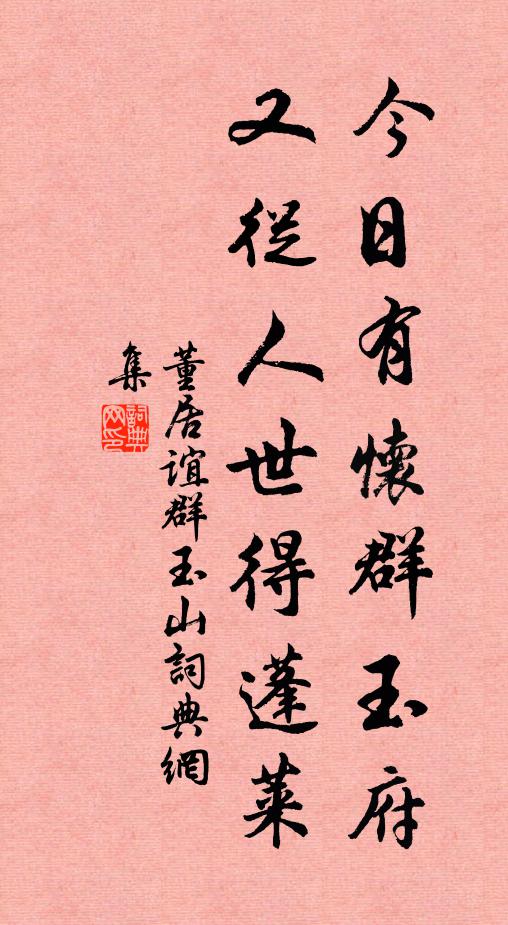 今日有懷群玉府
又從人世得蓬萊
董居誼群玉山詞典網
集
詞典网印